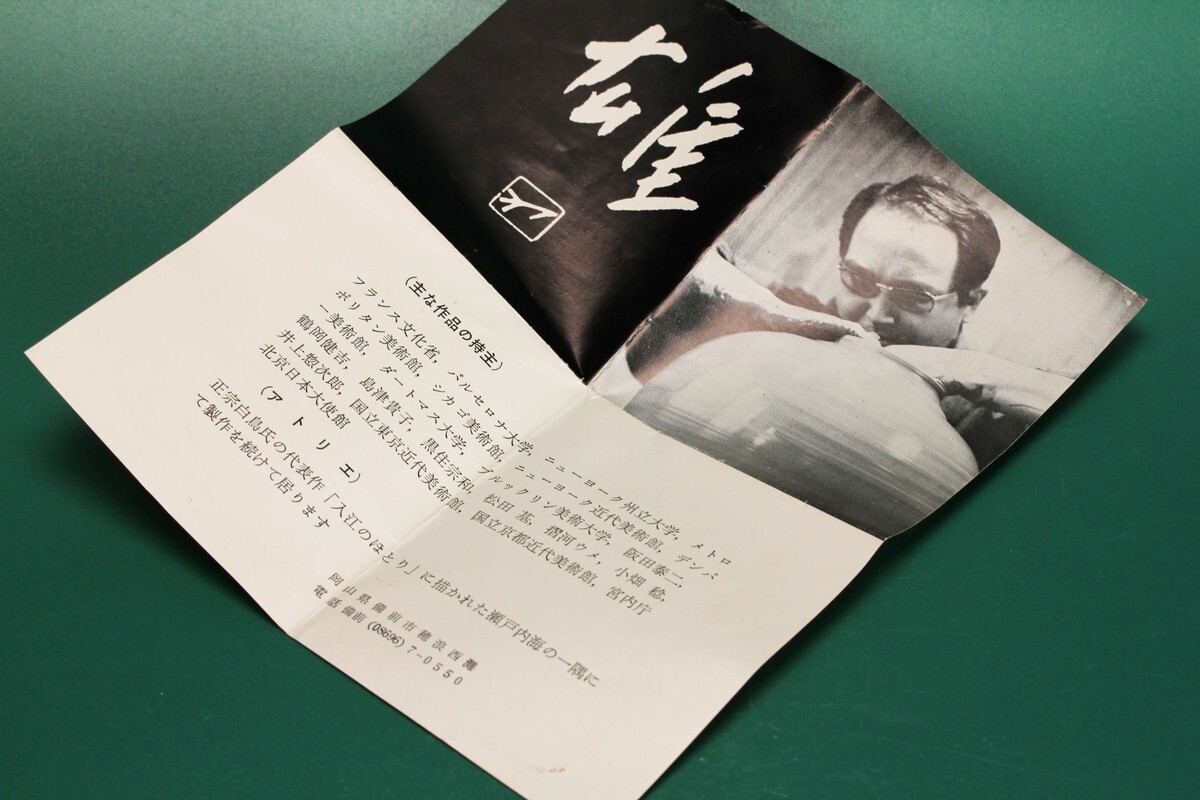 雄
(主な作品の持主)
フランス文化省，バルセロナ大学，ニューヨーク州立大学，メトロ
ポリタン美術館，シカゴ美術館，ニューヨーク近代美術館，デンバ
ー美術館，ダートマス大学，ブルックリン美術大学，阪田泰二，
鶴岡健吉，島津貴子，黒住宗和，松田基，摺河ウメ，小畑稔，
井上惣次郎，国立東京近代美術館，国立京都近代美術館，宮内庁
北京日本大使館
(アトリエ)
正宗白鳥氏の代表作「入江のほとり」に描かれた瀬戸内海の一隅に
て製作を続けて居ります
岡山県備前市穂浪西灘
電話備前(08696)7-0550